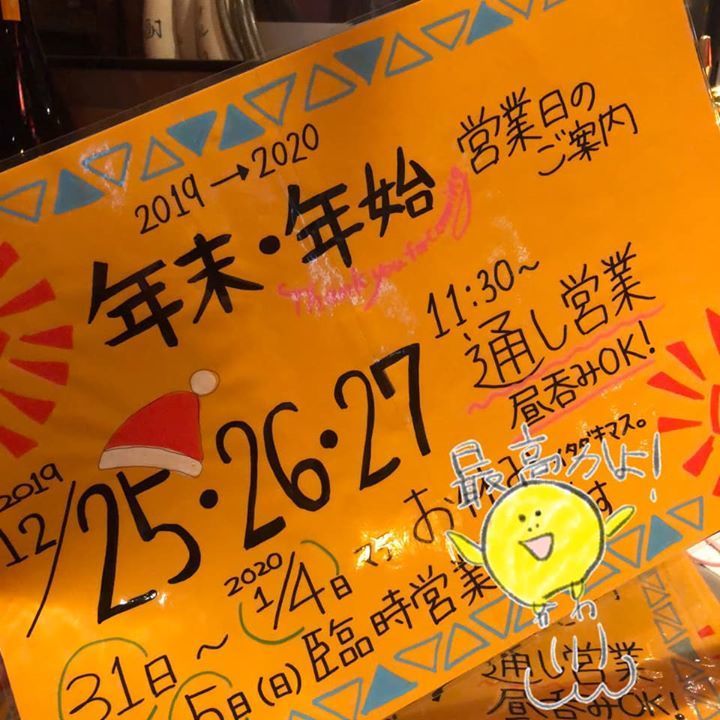 2019→2020
年末・年始
営業日の
ご案内
Thank you for coming
11:30~
通し営業
昼呑みOK!
2019
12/25・26・27
31日〜2020 1/4日マデ お休み
イタダキマス。
5日(日)臨時営業
す
最高ろしょ!
かね
通し営業
昼呑みOK!